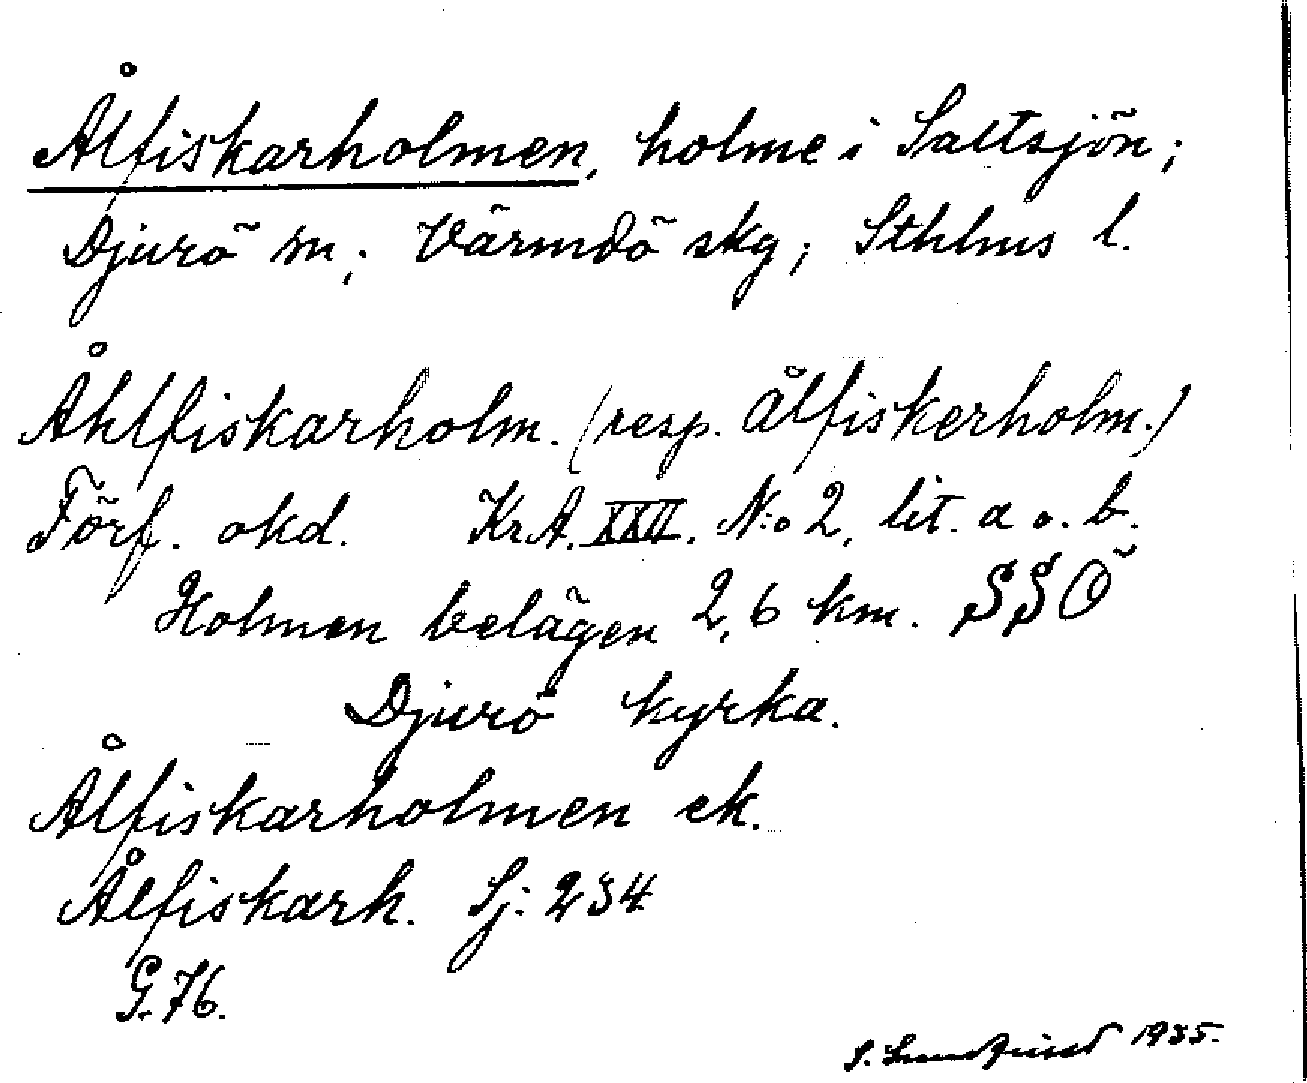 Ålfiskarholmen, holme i Saltsjön;
Djurö sn; Värmdö skg; Sthlms l.
Åhlfiskarholm. (resp. ålfiskerholm.)
Förf. okd. KrA. XXII. N:o 2, lit. a o. b.
Holmen belägen 2,6 km. SSÖ
Djurö kyrka.
Ålfiskarholmen ek.
Ålfiskarh. Sj: 234
G. 76.
S. 1935.